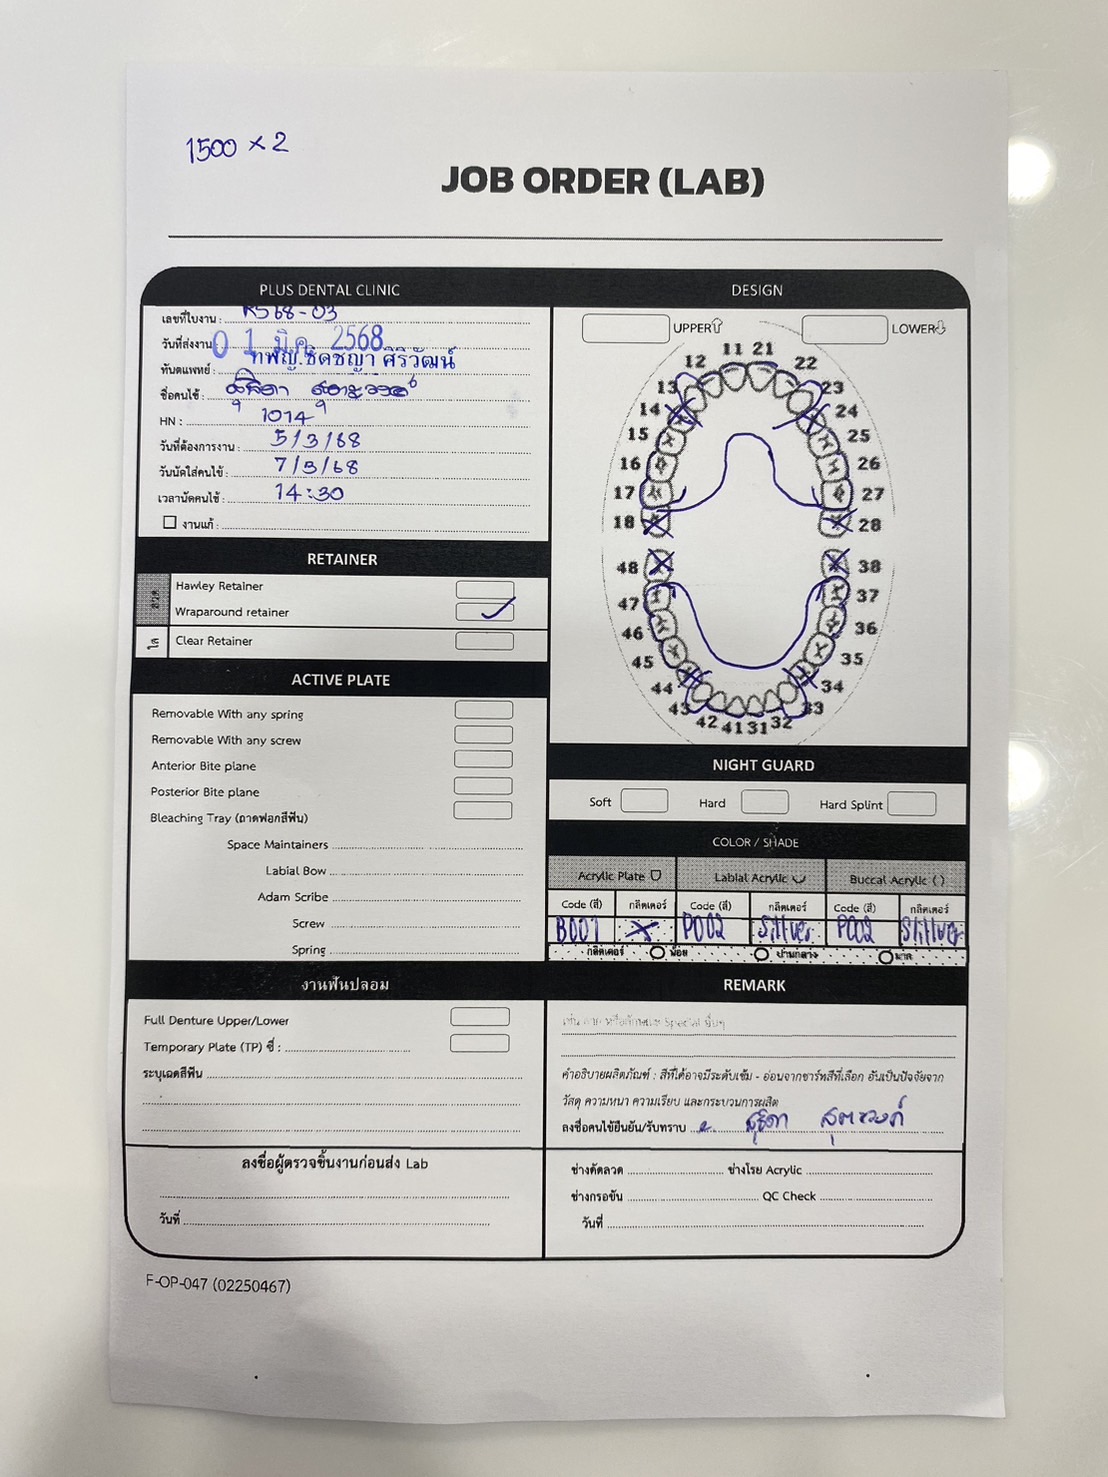 1500 × 2
JOB ORDER (LAB)
PLUS DENTAL CLINIC
เลขที่ใบงาน : RS68-03
วันที่ส่งงาน 01 มี.ค. 2568
ทันตแพทย์ : ทพญ.ธิดชญา ศิริวัฒน์
ชื่อคนไข้ : สุธิดา
HN : 1014
วันที่ต้องการงาน : 5/3/68
วันนัดใส่คนไข้ : 7/3/68
เวลานัดคนไข้ : 14:30
งานแก้ :
RETAINER
ลวด
Hawley Retainer
Wraparound retainer ✓
ใส
Clear Retainer
ACTIVE PLATE
Removable With any spring
Removable With any screw
Anterior Bite plane
Posterior Bite plane
Bleaching Tray (ถาดฟอกสีฟัน)
Space Maintainers
Labial Bow
Adam Scribe
Screw
Spring
งานฟันปลอม
Full Denture Upper/Lower
Temporary Plate (TP) ซี่ :
ระบุเฉดสีฟัน
ลงชื่อผู้ตรวจชิ้นงานก่อนส่ง Lab
วันที่
DESIGN
UPPER LOWER
11 21
12 22
13 23
14 24
15 25
16 26
17 27
18 28
48 38
47 37
46 36
45 35
44 34
43 33
42 41 31 32
NIGHT GUARD
Soft Hard Hard Splint
COLOR / SHADE
Acrylic Plate Labial Acrylic Buccal Acrylic ( )
Code (สี) กลิตเตอร์ Code (สี) กลิตเตอร์ Code (สี) กลิตเตอร์
B001 X P002 Sillver P002 Sillver
กลิตเตอร์ น้อย ปานกลาง มาก
REMARK
เช่น ลาย หรือลักษณะ Special อื่นๆ
คำอธิบายผลิตภัณฑ์ : สีที่ได้อาจมีระดับเข้ม - อ่อนจากชาร์ทสีที่เลือก อันเป็นปัจจัยจาก
วัสดุ ความหนา ความเรียบ และกระบวนการผลิต
ลงชื่อคนไข้ยืนยัน/รับทราบ สุธิดา
ช่างดัดลวด ช่างโรย Acrylic
ช่างกรอขัน QC Check
วันที่
F-OP-047 (02250467)